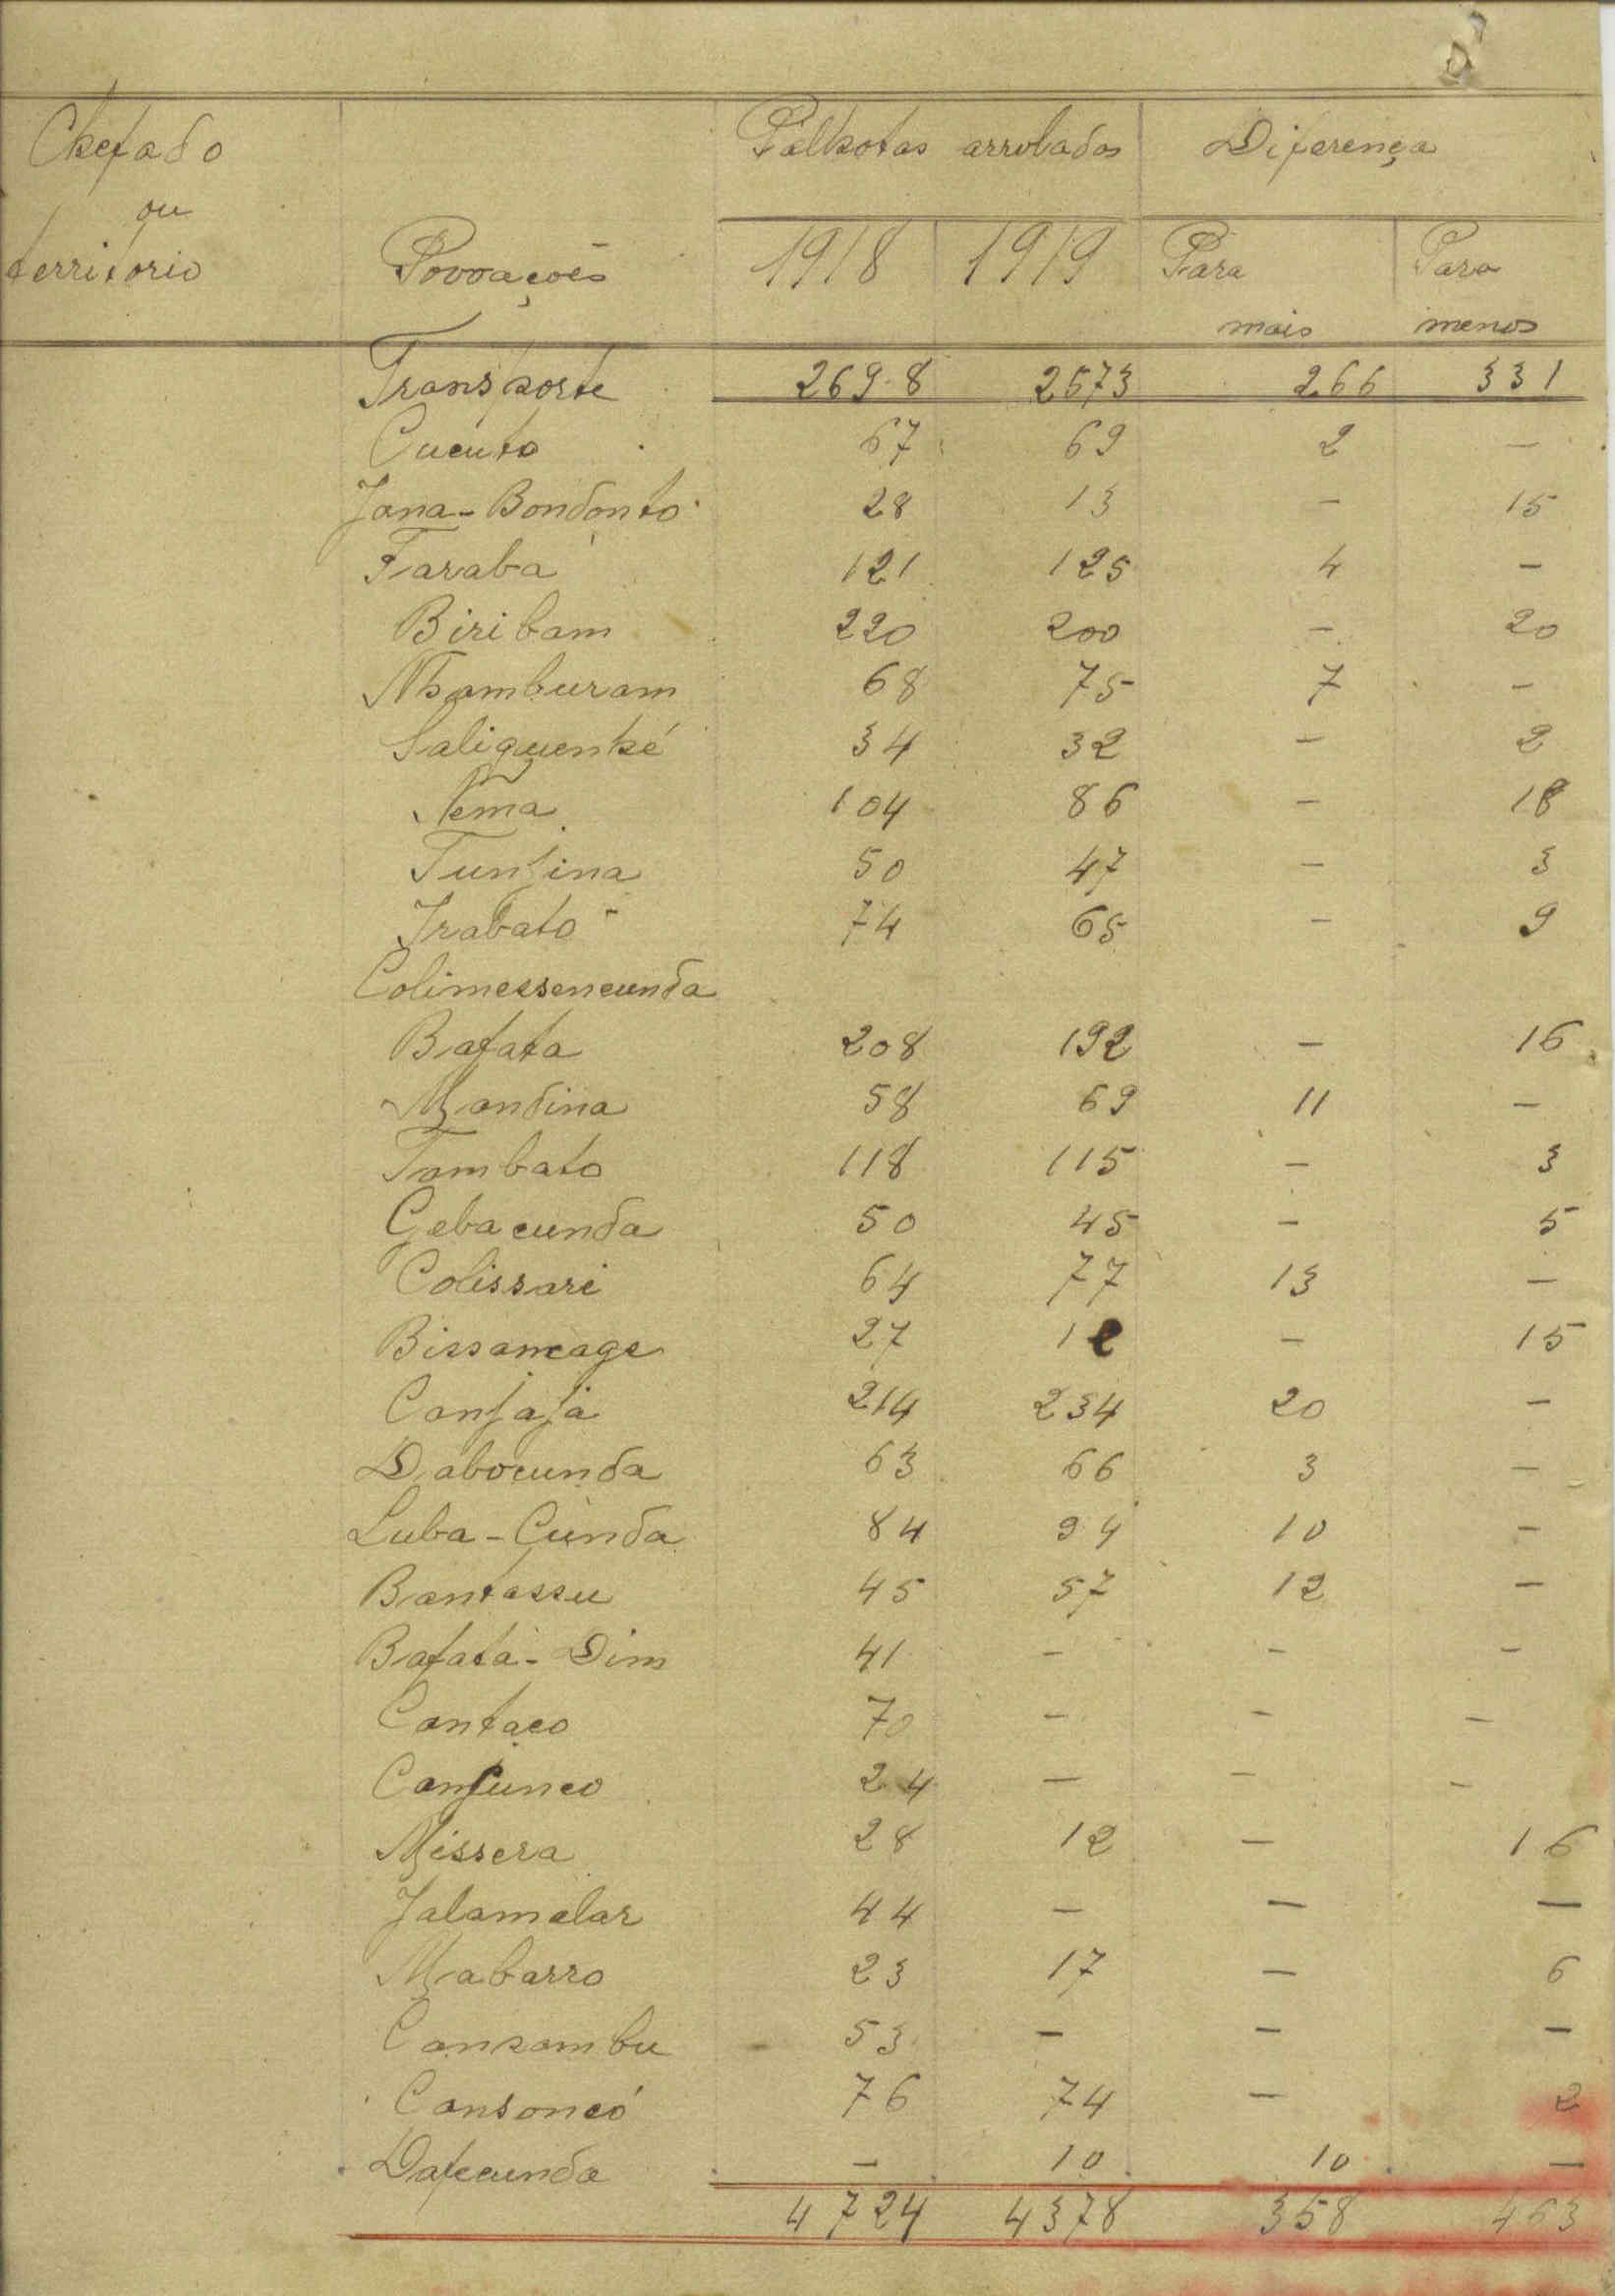 Chefado
ou
territorio
Povoações
Palhotas arroladas
Diferença
1918 1919 Para mais Para menos
Transporte 2698 2573 266 331
Cucuto 67 69 2 —
Jana-Bondonto 28 13 — 15
Faraba 121 125 4 —
Biribam 220 200 — 20
Nhamburam 68 75 7 —
Saliquenhé 34 32 — 2
Nema 104 86 — 18
Tunjina 50 47 — 3
Jrabato 74 65 — 9
Colimessencunda
Bafata 208 192 — 16
Mandina 58 69 11 —
Tambato 118 115 — 3
Geba cunda 50 45 — 5
Colissari 64 77 13 —
Bissancage 27 12 — 15
Canjaja 214 234 20 —
Dabocunda 63 66 3 —
Luba-Cunda 84 94 10 —
Bantassu 45 57 12 —
Bafatá-Dim 41 — — —
Cantaco 70 — — —
Canjunco 24 — — —
Missera 28 12 — 16
Jalamalar 44 — — —
Mabarro 23 17 — 6
Cansambu 53 — — —
Cansoncó 76 74 — 2
Dafecunda — 10 10 —
4724 4378 358 463